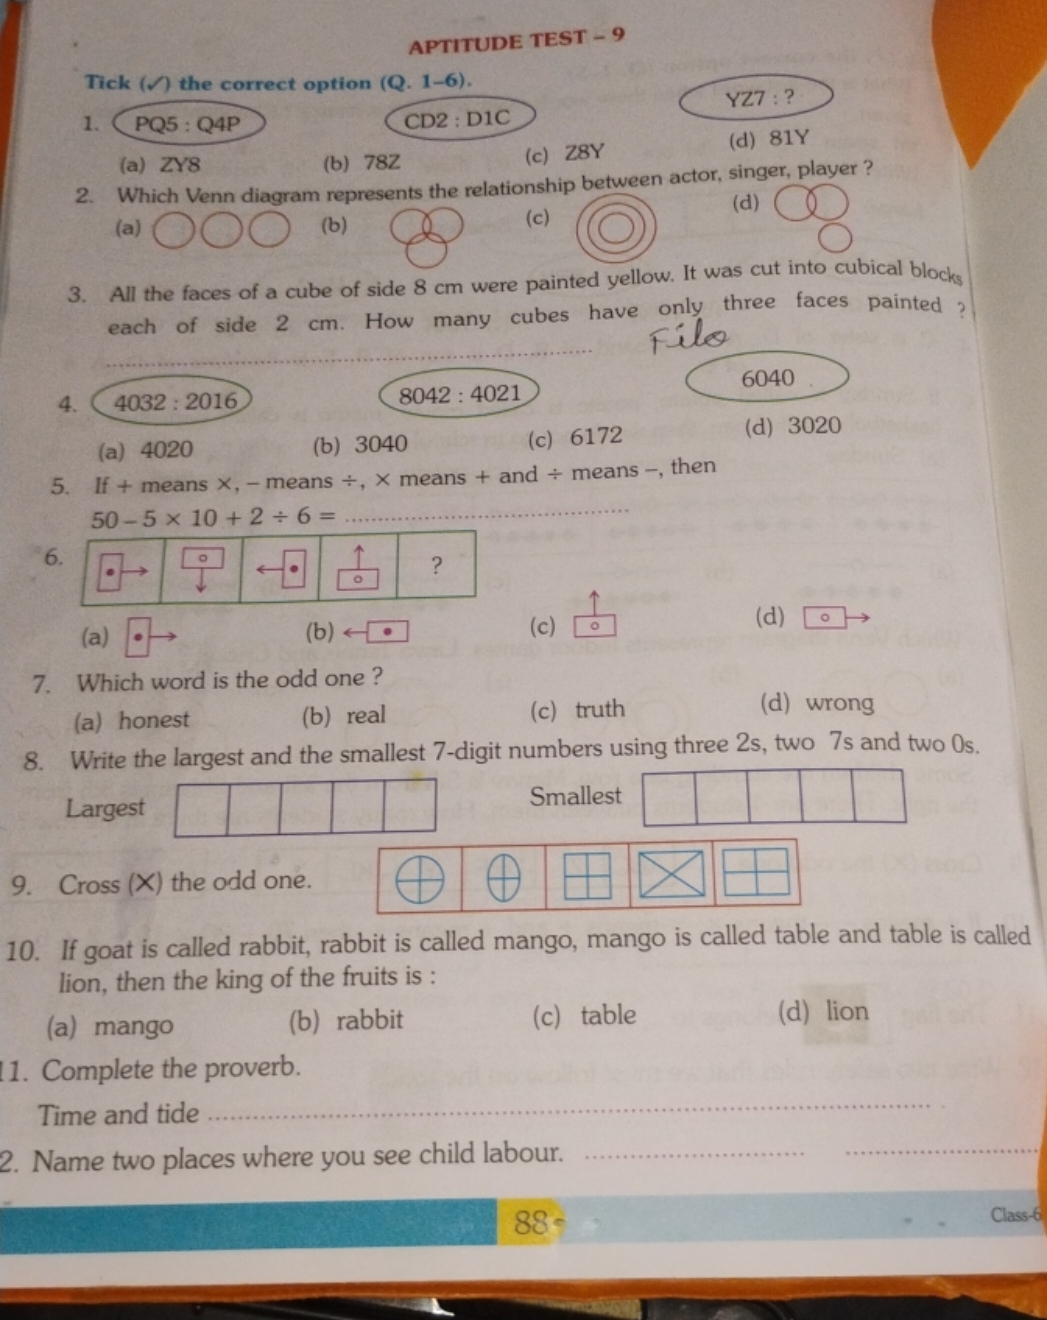 APTITUDE TEST – 9
Tick (✓) the correct option (Q. 1–6).
1. PQ5 : Q4P CD2 : D1C YZ7 : ?
(a) ZY8 (b) 78Z (c) Z8Y (d) 81Y
2. Which Venn diagram represents the relationship between actor, singer, player ?
(a) (b) (c) (d)
3. All the faces of a cube of side 8 cm were painted yellow. It was cut into cubical blocks
each of side 2 cm. How many cubes have only three faces painted ?
Filo
4. 4032 : 2016 8042 : 4021 6040
(a) 4020 (b) 3040 (c) 6172 (d) 3020
5. If + means ×, – means ÷, × means + and ÷ means –, then
50 – 5 × 10 + 2 ÷ 6 =
6. ?
(a) (b) (c) (d)
7. Which word is the odd one ?
(a) honest (b) real (c) truth (d) wrong
8. Write the largest and the smallest 7-digit numbers using three 2s, two 7s and two 0s.
Largest Smallest
9. Cross (X) the odd one.
10. If goat is called rabbit, rabbit is called mango, mango is called table and table is called
lion, then the king of the fruits is :
(a) mango (b) rabbit (c) table (d) lion
11. Complete the proverb.
Time and tide
2. Name two places where you see child labour.
88
Class-6